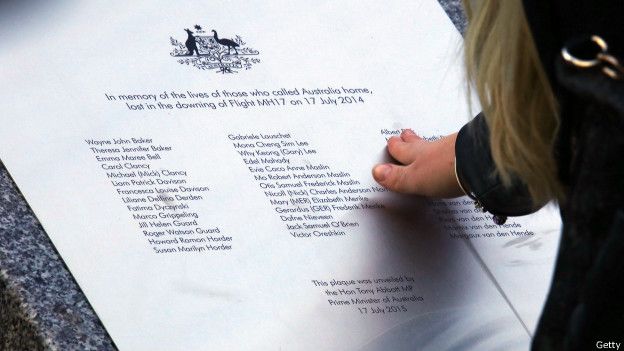 In memory of the lives of those who called Australia home,
lost in the downing of Flight MH17 on 17 July 2014
Wayne John Baker
Theresa Jennifer Baker
Emma Maree Bell
Carol Clancy
Michael (Mick) Clancy
Liam Patrick Davison
Francesca Louise Davison
Liliane Derden
Fatima Dyczynski
Marco Grippeling
Jill Helen Guard
Roger Watson Guard
Howard Ramon Horder
Susan Marilyn Horder
Gabriele Lauschet
Mona Cheng Sim Lee
Why Keong (Gary) Lee
Edel Mahady
Evie Coco Anne Maslin
Mo Robert Anderson Maslin
Otis Samuel Frederick Maslin
Nicoll (Nick) Charles Anderson Nor
Mary (MER) Elizabeth Menke
Gerardus (GER) Frederik Menke
Dafne Nieveen
Jack Samuel O'Brien
Victor Oreshkin
Albert
van den Hende
van den Hende
Margaux van den Hende
This plaque was unveiled by
the Hon Tony Abbott MP
Prime Minister of Australia
17 July 2015
Getty